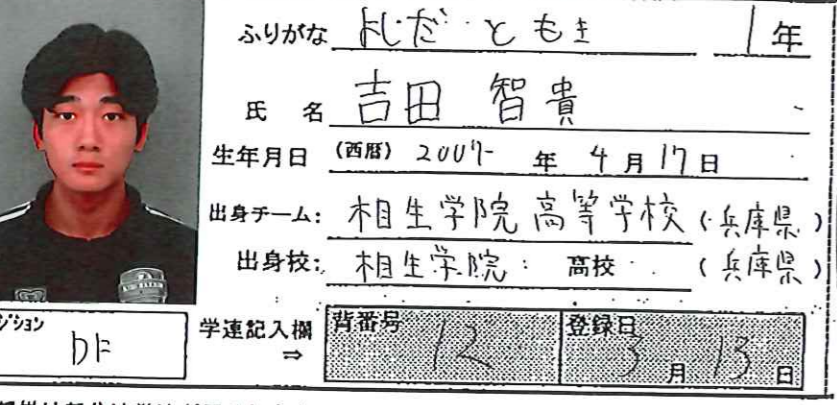 ふりがな よしだ ともき 1年
氏名 吉田 智貴
生年月日 (西暦) 2007年 4月17日
出身チーム: 相生学院高等学校 (兵庫県)
出身校: 相生学院 高校 (兵庫県)
ジション DF
学連記入欄 ⇒ 背番号 12 登録日 3月13日